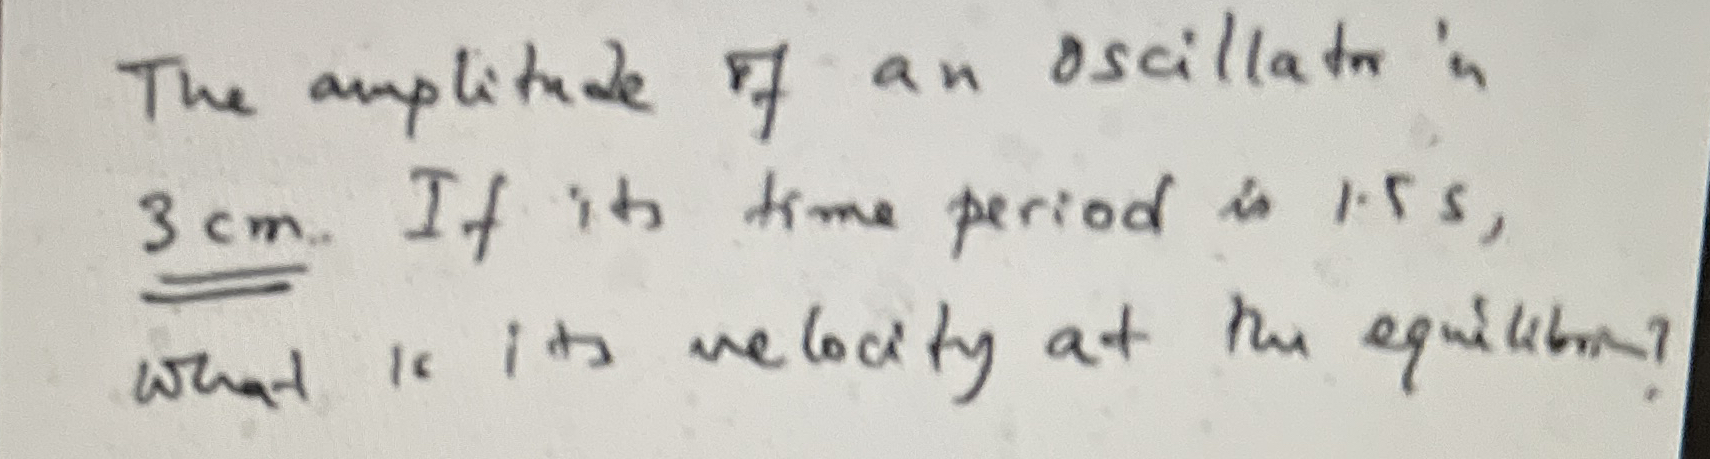 The amplitude of an oscillator is
3 cm. If its time period is 1.5 s,
what is its velocity at the equilibrium?